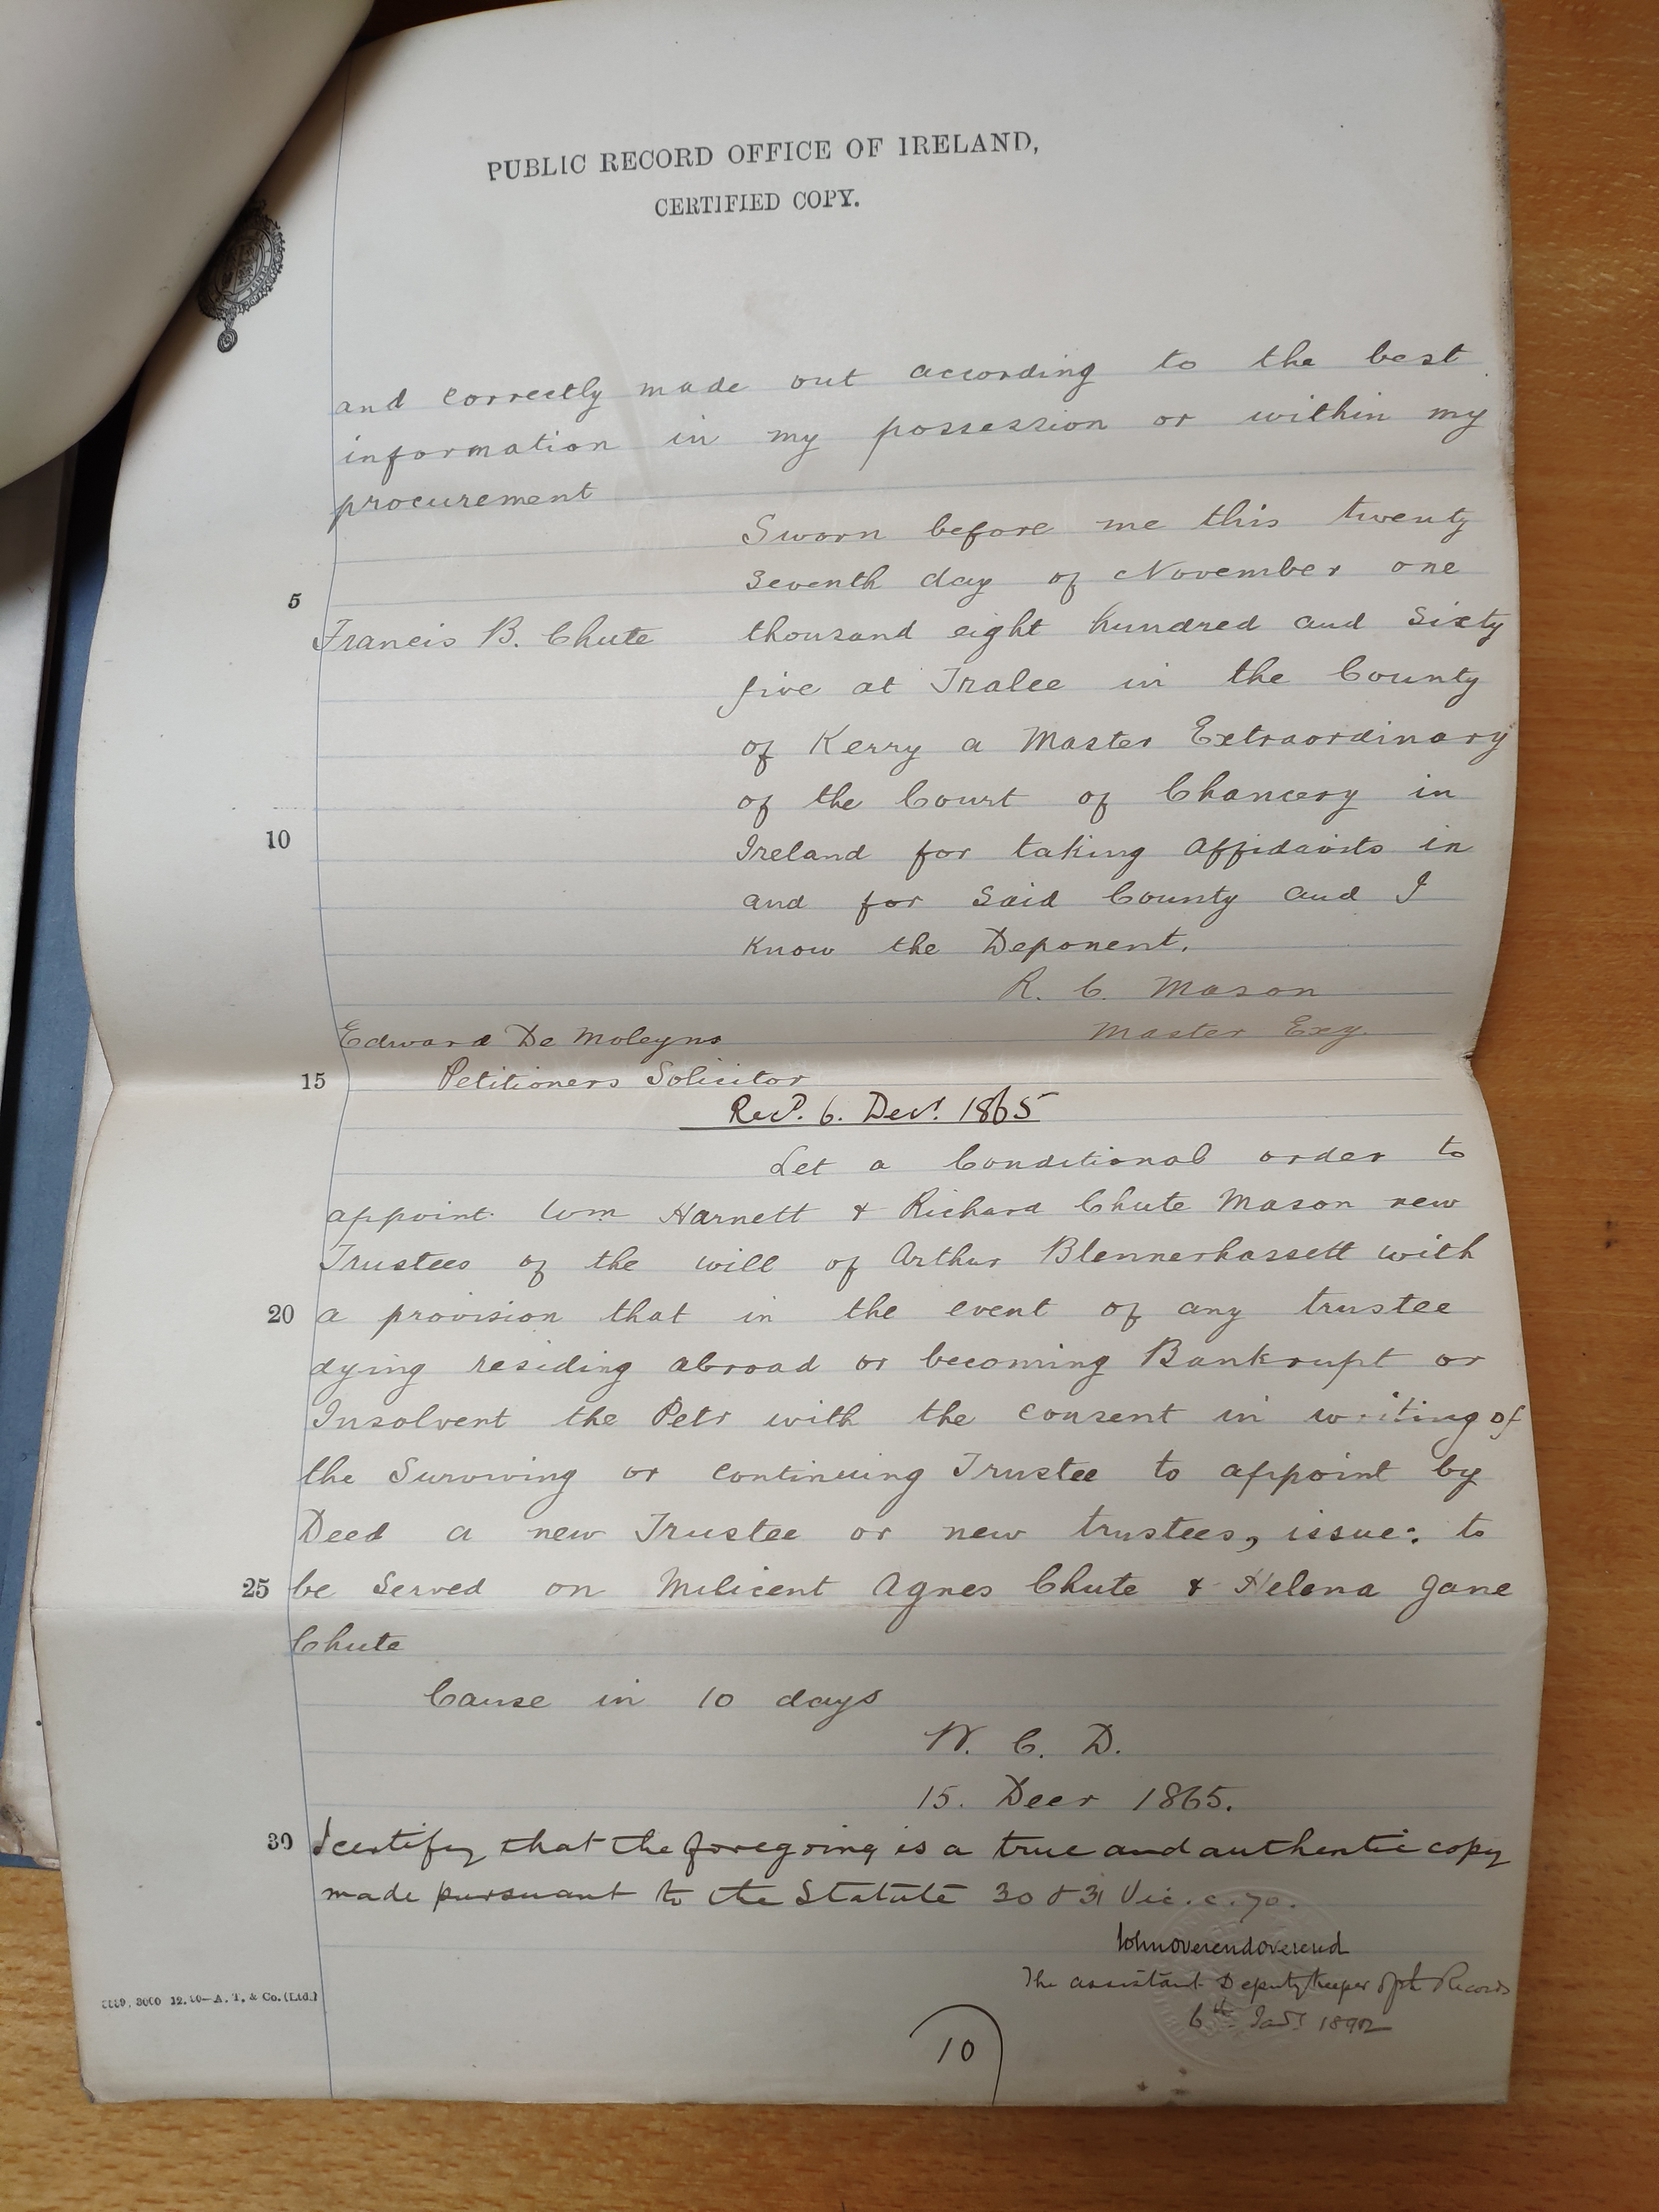 PUBLIC RECORD OFFICE OF IRELAND,
CERTIFIED COPY.
and correctly made out according to the best
information in my possession or within my
procurement
Sworn before me this twenty
seventh day of November one
5
Francis B. Chute thousand eight hundred and sixty
five at Tralee in the County
of Kerry a Master Extraordinary
of the Court of Chancery in
10
Ireland for taking Affidavits in
and for Said County and I
know the Deponent.
R. C. Mason
Edward De Moleyns Master Exy.
15 Petitioners Solicitor
Recd. 6. Decr. 1865
Let a Conditional order to
appoint Wm Harnett & Richard Chute Mason new
Trustees of the will of Arthur Blennerhassett with
20 a provision that in the event of any trustee
dying residing abroad or becoming Bankrupt or
Insolvent the Petr with the consent in writing of
the Surviving or continuing Trustee to appoint by
Deed a new Trustee or new trustees, issue: to
25 be Served on Milicent Agnes Chute & Helena Jane
Chute
Cause in 10 days
W. C. D.
15. Decr 1865.
30 I certify that the foregoing is a true and authentic copy
made pursuant to the Statute 30 & 31 Vic. c. 70.
John Overend Overend
The assistant Deputy Keeper of the Records
6th Jany 1892
A. T. & Co. (Ltd.)
10